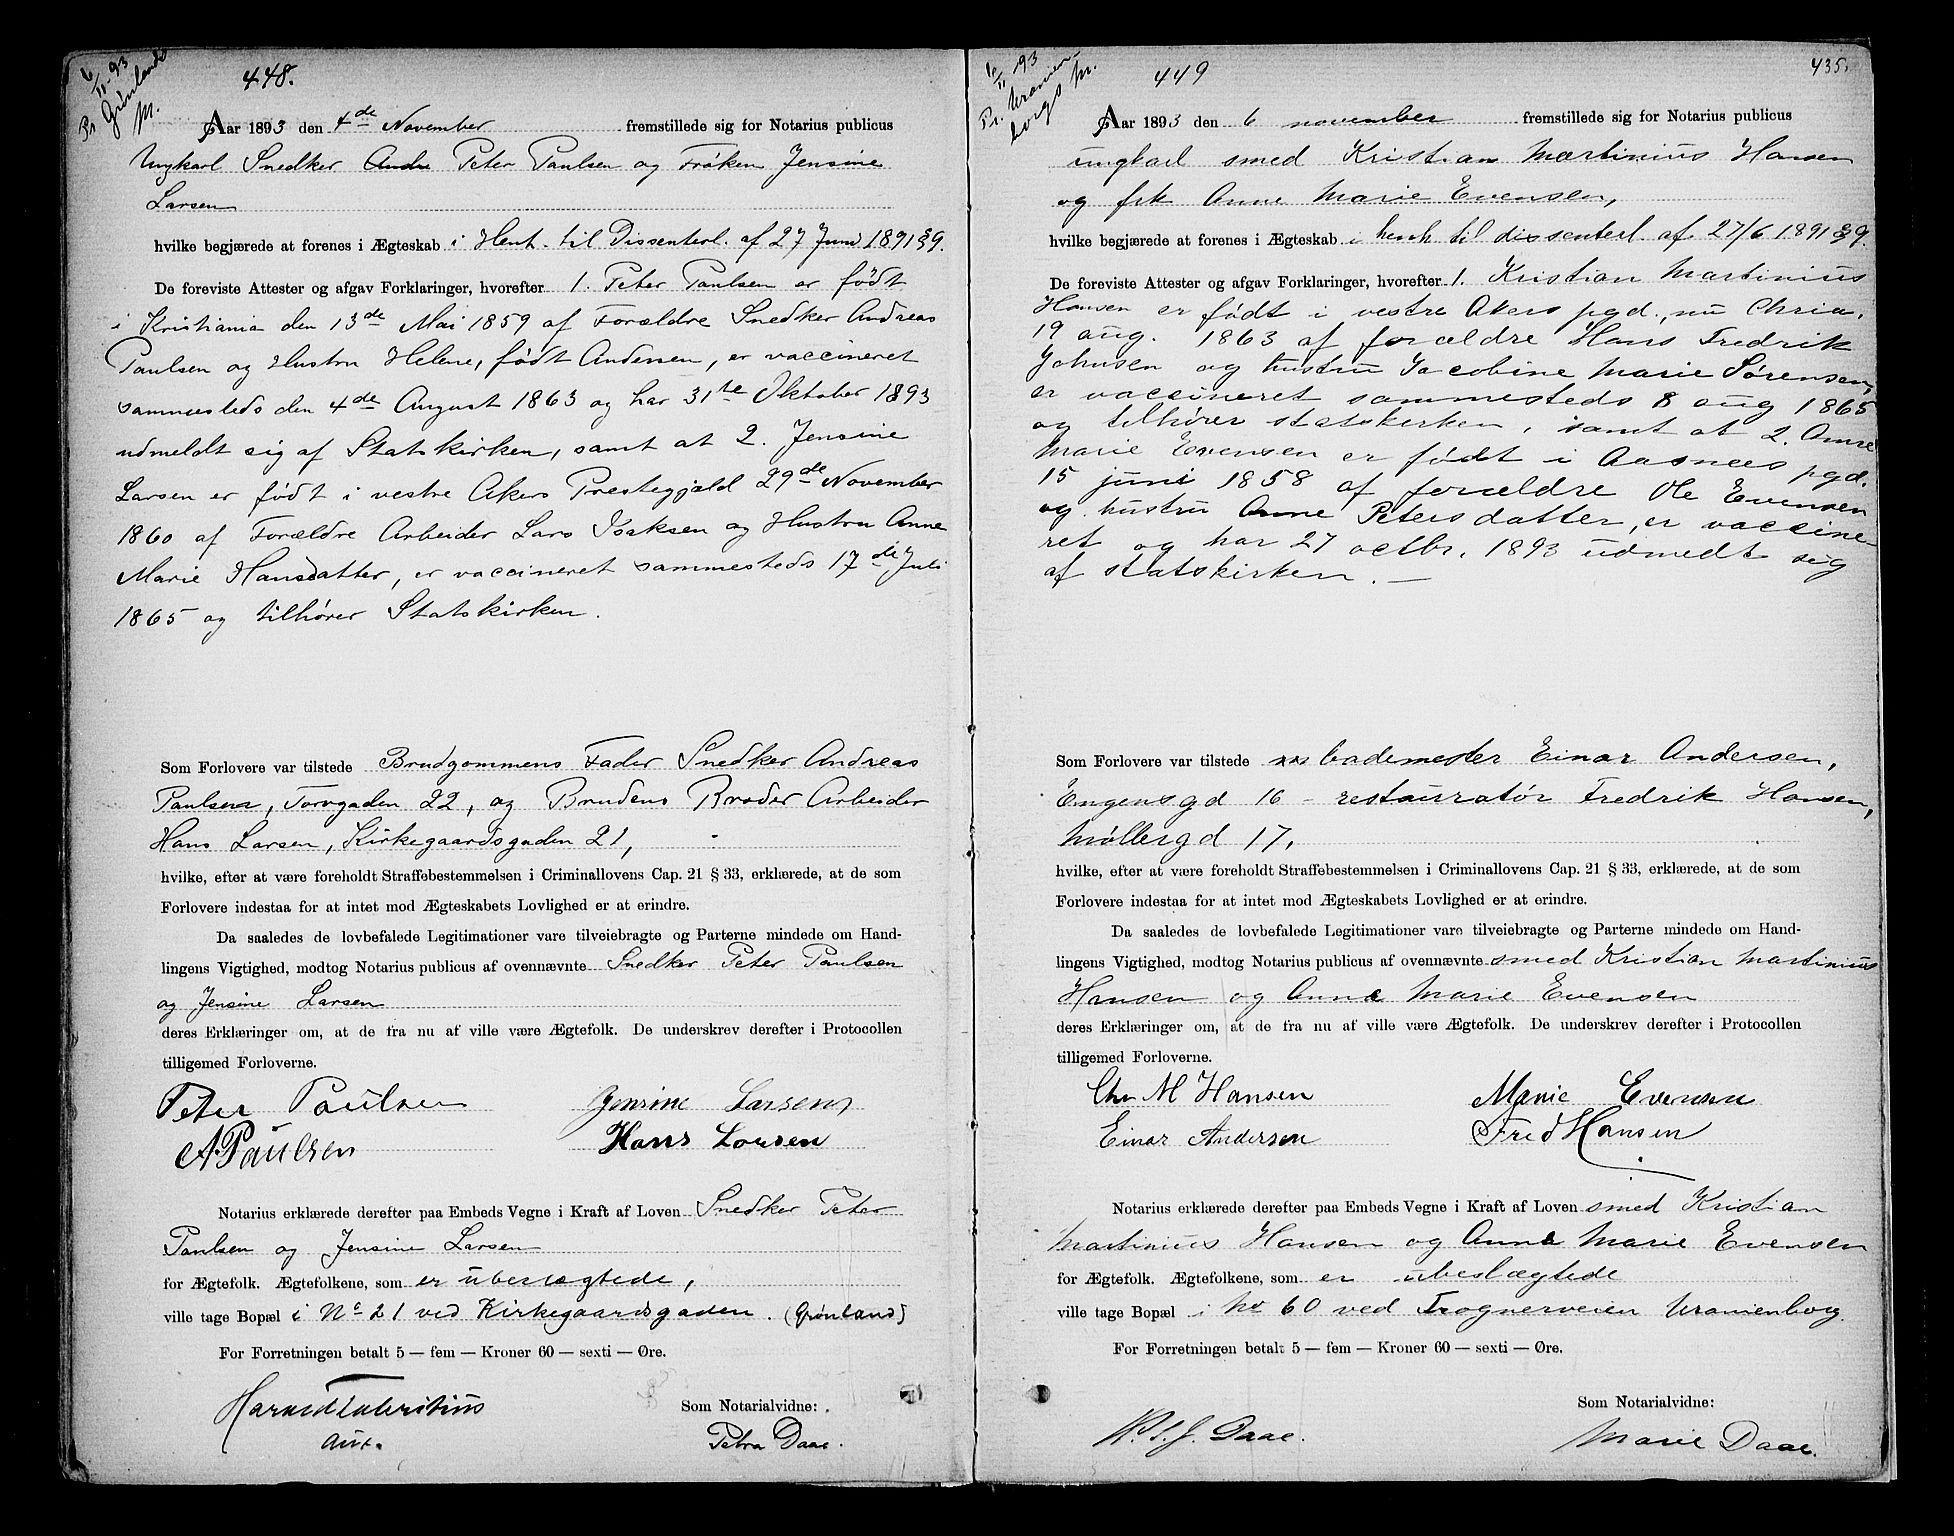 6/11 93
Pr. Grønlands
M.
448.
Aar 1893 den 4de November fremstillede sig for Notarius publicus
Ungkarl Snedker Peter Paulsen og Frøken Jensine
Larsen
hvilke begjærede at forenes i Ægteskab i Henh. til Dissenterl. af 27 Juni 1891 § 9.
De foreviste Attester og afgav Forklaringer, hvorefter 1. Peter Paulsen er født
i Kristiania den 13de Mai 1859 af Forældre Snedker Andreas
Paulsen og Hustru Helene, født Andersen, er vaccineret
sammesteds den 4de August 1863 og har 31te Oktober 1893
udmeldt sig af Statskirken, samt at 2. Jensine
Larsen er født i vestre Akers Prestegjæld 29de November
1860 af Forældre Arbeider Lars Isaksen og Hustru Anne
Marie Hansdatter, er vaccineret sammesteds 17de Juli
1865 og tilhører Statskirken.
Som Forlovere var tilstede Brudgommens Fader Snedker Andreas
Paulsen, Torvgaden 22, og Brudens Broder Arbeider
Hans Larsen, Kirkegaardsgaden 21,
hvilke, efter at være foreholdt Straffebestemmelsen i Criminallovens Cap. 21 § 33, erklærede, at de som
Forlovere indestaa for at intet mod Ægteskabets Lovlighed er at erindre.
Da saaledes de lovbefalede Legitimationer vare tilveiebragte og Parterne mindede om Hand-
lingens Vigtighed, modtog Notarius publicus af ovennævnte Snedker Peter Paulsen
og Jensine Larsen
deres Erklæringer om, at de fra nu af ville være Ægtefolk. De underskrev derefter i Protocollen
tilligemed Forloverne.
Peter Paulsen Jensine Larsen
A. Paulsen Hans Larsen
Notarius erklærede derefter paa Embeds Vegne i Kraft af Loven Snedker Peter
Paulsen og Jensine Larsen
for Ægtefolk. Ægtefolkene, som er ubeslægtede,
ville tage Bopæl i No 21 ved Kirkegaardsgaden. (Grønland)
For Forretningen betalt 5 — fem — Kroner 60 — sexti — Øre.
Som Notarialvidne:
aut. Petra Daae.
6/11 93
Pr. Uranien-
borgs M.
449
435.
Aar 1893 den 6 november fremstillede sig for Notarius publicus
ungkarl smed Kristian Martinius Hansen
og frk Anne Marie Evensen,
hvilke begjærede at forenes i Ægteskab i henh til dissenterl. af 27/6 1891 § 9.
De foreviste Attester og afgav Forklaringer, hvorefter 1. Kristian Martinius
Hansen er født i vestre Akers pgd., nu Chria,
19 aug. 1863 af forældre Hans Fredrik
Johnsen og hustru Jacobine Marie Sørensen,
er vaccineret sammesteds 8 aug 1865
og tilhører statskirken, samt at 2. Anne
Marie Evensen er født i Aasnes pgd.
15 juni 1858 af forældre Ole Evensen
og hustru Anne Petersdatter, er vaccine-
ret og har 27 octbr. 1893 udmedt sig
af statskirken. —
Som Forlovere var tilstede bademester Einar Andersen,
Engensgd 16 – restauratør Fredrik Hansen,
Møllergd 17,
hvilke, efter at være foreholdt Straffebestemmelsen i Criminallovens Cap. 21 § 33, erklærede, at de som
Forlovere indestaa for at intet mod Ægteskabets Lovlighed er at erindre.
Da saaledes de lovbefalede Legitimationer vare tilveiebragte og Parterne mindede om Hand-
lingens Vigtighed, modtog Notarius publicus af ovennævnte smed Kristian Martinius
Hansen og Anne Marie Evensen
deres Erklæringer om, at de fra nu af ville være Ægtefolk. De underskrev derefter i Protocollen
tilligemed Forloverne.
Chr M Hansen Marie Evensen
Einar Andersen Fred Hansen
Notarius erklærede derefter paa Embeds Vegne i Kraft af Loven smed Kristian
Martinius Hansen og Anne Marie Evensen
for Ægtefolk. Ægtefolkene, som er ubeslægtede
ville tage Bopæl i No 60 ved Frognerveien Uranienborg.
For Forretningen betalt 5 — fem — Kroner 60 — sexti — Øre.
Som Notarialvidne:
Daae. Marie Daae.